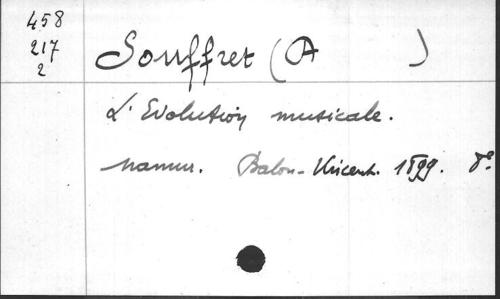 458
217
2
Souffret (A )
L'Evolution musicale.
Namur. Balon-Vincent. 1899. 8°